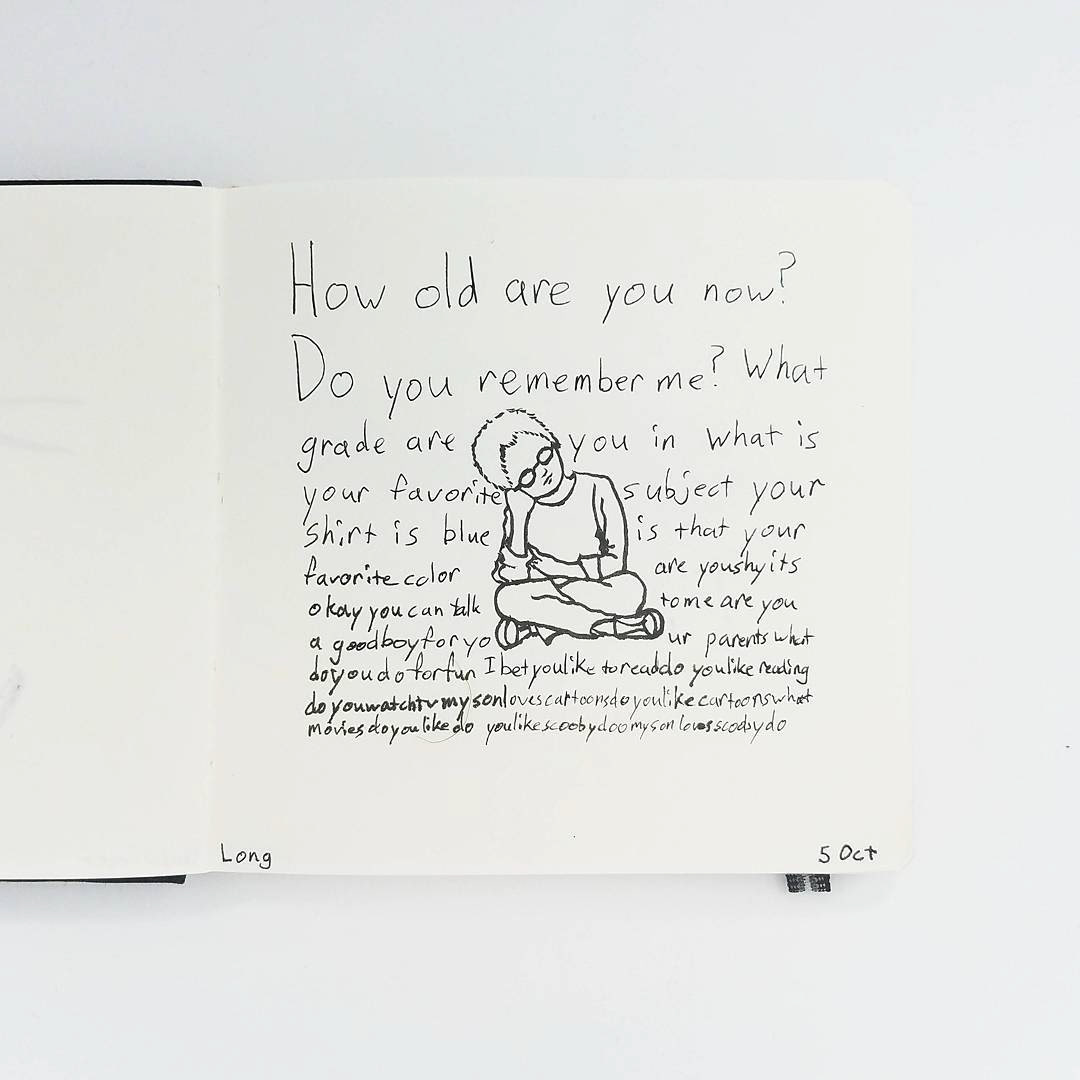 How old are you now?
Do you remember me? What
grade are you in what is
your favorite subject your
shirt is blue is that your
favorite color are youshyits
okay you can talk tome are you
a goodboyforyo ur parents what
doyoudoforfun I betyoulike toreaddo youlike reading
doyouwatchtvmysonlovescartoonsdoyoulikecartoonswhat
moviesdoyoulikedo youlikescoobydoomysonlovesscoobydo
Long
5 Oct